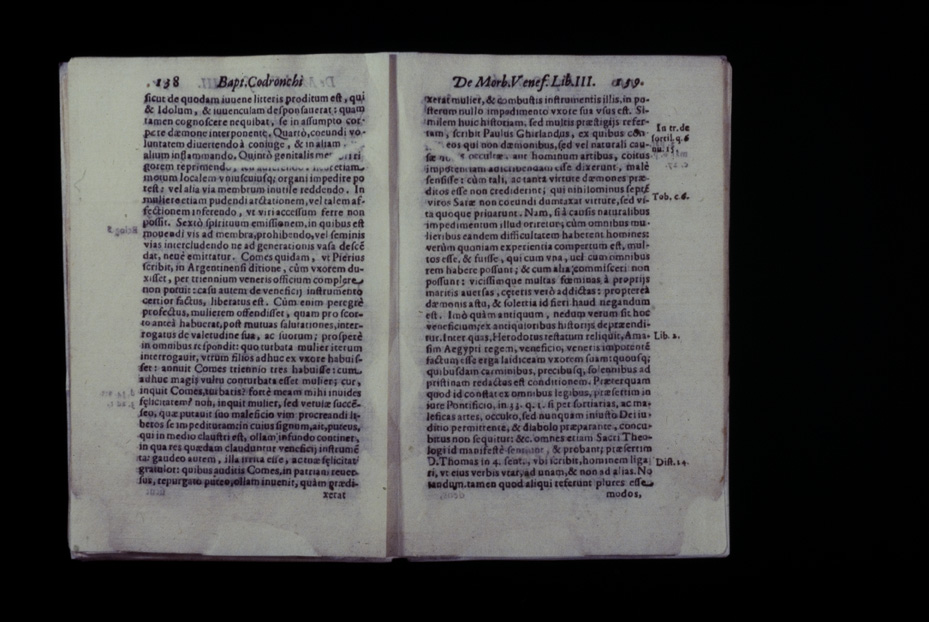 138 Bapt. Codronchi
sicut de quodam iuuene litteris proditum est, qui
& Idolum, & iuuenculam desponsauerat: quam
tamen cognoscere nequibat, se in assumpto cor-
pore dæmone interponente. Quartò, coeundi vo-
luntatem diuertendo à coniuge, & in aliam
alium inflammando. Quintò genitalis
gorem reprimendo, etiam
motum localem vniuscuiusq; organi impedire po
test: vel alia via membrum inutile reddendo. In
muliere etiam pudendi arctationem, vel talem af-
fectionem inferendo, vt viri accessum ferre non
possit. Sextò spirituum emissionem, in quibus est
mouendi vis ad membra, prohibendo, vel seminis
vias intercludendo ne ad generationis vasa descē
dat, neuè emittatur. Comes quidam, vt Pierius
scribit, in Argentinensi ditione, cùm vxorem du-
xisset, per triennium veneris officium complere
non potuit: casu autem de veneficij instrumento
certior factus, liberatus est. Cùm enim peregrè
profectus, mulierem offendisset, quam pro scor-
to anteà habuerat, post mutuas salutationes, inter-
rogatus de valetudine sua, ac suorum; prosperè
in omnibus respondit: quo turbata mulier iterum
interrogauit, vtrùm filios adhuc ex vxore habuis-
set: annuit Comes triennio tres habuisse: cum
adhuc magis vultu conturbata esset mulier; cur,
inquit Comes, turbaris? fortè meam mihi inuides
felicitatem? non, inquit mulier, sed vetulæ succē-
seo, quæ putauit suo maleficio vim procreandi li-
beros se impedituram: in cuius signum, ait, puteus,
qui in medio claustri est, ollam in fundo continet,
in qua res quædam clauduntur veneficij instrumē
ta: gaudeo autem, illa irrita esse, ac tuæ felicitati
gratulor: quibus auditis Comes, in patriam reuer-
sus, repurgato puteo, ollam inuenit, quàm prædi-
xerat
De Morb. Venef. Lib. III. 139.
xerat mulier, & combustis instrumentis illis, in po-
sterum nullo impedimento vxore sua vsus est. Si-
milem huic historiam, sed multis præstigijs refer-
tam, scribit Paulus Ghirlandus, ex quibus con-
eos qui non dæmonibus, sed vel naturali cau-
sæ occultæ, aut hominum artibus, coitus
impotentiam adscribendam esse dixerunt, malè
sensisse: cùm tali, ac tanta virtute dæmones præ-
ditos esse non crediderint; qui nihilominus septē
viros Saræ non coeundi dumtaxat virtute, sed vi-
ta quoque priuarunt. Nam, si à causis naturalibus
impedimentum illud oriretur, cùm omnibus mu-
lieribus eandem difficultatem haberent homines:
verùm quoniam experientia compertum est, mul-
tos esse, & fuisse, qui cum vna, uel cum omnibus
rem habere possunt; & cum alia commisceri non
possunt: vicissimque multas fœminas à proprijs
maritis auersas, ceteris verò addictas: propterea
dæmonis astu, & solertia id fieri haud negandum
est. Imò quàm antiquum, nedum verum sit hoc
veneficium; ex antiquioribus historijs depræendi-
tur. Inter quas, Herodotus testatum reliquit, Ama-
sim Aegypti regem, veneficio, veneris impotentē
factum esse erga laidiceam vxorem suam: quousq;
quibusdam carminibus, precibusq, solennibus ad
pristinam redactus est conditionem. Præterquam
quod id constat ex omnibus legibus, præsertim in
iure Pontificio, in 33. q. 1. si per sortiarias, ac ma-
leficas artes, occulto, sed nunquam iniusto Dei iu-
ditio permittente, & diabolo præparante, concu-
bitus non sequitur: &c. omnes etiam Sacri Theo-
logi id manifestè sentiunt, & probant; præsertim
D. Thomas in 4. sent., vbi scribit, hominem liga
ri, vt eius verbis vtar, ad unam, & non ad alias. No
tandum tamen quod aliqui referunt plures esse
modos,
In tr. de
sortil. q. 6
nu. 15.
Tob. c. 6.
Lib. 2.
Dist. 24.